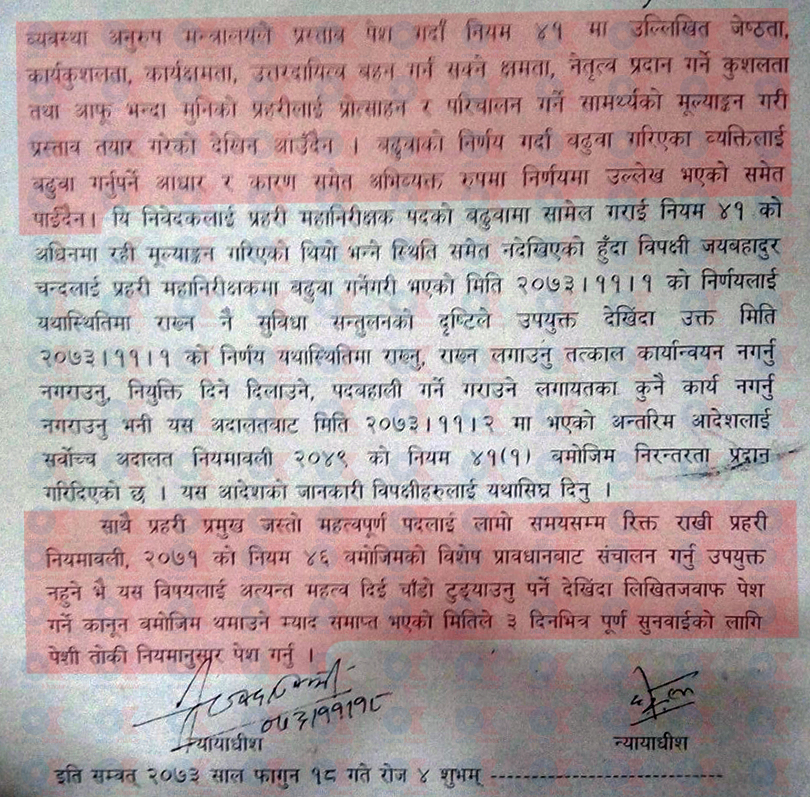 व्यवस्था अनुरुप मन्त्रालयले प्रस्ताव पेश गर्दा नियम ४१ मा उल्लिखित जेष्ठता,
कार्यकुशलता, कार्यक्षमता, उत्तरदायित्व बहन गर्न सक्ने क्षमता, नेतृत्व प्रदान गर्ने कुशलता
तथा आफू भन्दा मुनिको प्रहरीलाई प्रोत्साहन र परिचालन गर्ने सामर्थ्यको मूल्याङ्कन गरी
प्रस्ताव तयार गरेको देखिन आउँदैन । बढुवाको निर्णय गर्दा बढुवा गरिएका व्यक्तिलाई
बढुवा गर्नुपर्ने आधार र कारण समेत अभिव्यक्त रुपमा निर्णयमा उल्लेख भएको समेत
पाईदैन। यि निवेदकलाई प्रहरी महानिरीक्षक पदको बढुवामा सामेल गराई नियम ४१ को
अधिनमा रही मूल्याङ्कन गरिएको थियो भन्ने स्थिति समेत नदेखिएको हुँदा विपक्षी जयबहादुर
चन्दलाई प्रहरी महानिरीक्षकमा बढुवा गर्नेगरी भएको मिति २०७३।११।१ को निर्णयलाई
यथास्थितिमा राख्न नै सुविधा सन्तुलनको दृष्टिले उपयुक्त देखिंदा उक्त मिति
२०७३।११।१ को निर्णय यथास्थितिमा राख्नु, राख्न लगाउनु तत्काल कार्यान्वयन नगर्नु
नगराउनु, नियुक्ति दिने दिलाउने, पदबहाली गर्ने गराउने लगायतका कुनै कार्य नगर्नु
नगराउनु भनी यस अदालतबाट मिति २०७३।११।२ मा भएको अन्तरिम आदेशलाई
सर्वोच्च अदालत नियमावली २०४९ को नियम ४१(१) बमोजिम निरन्तरता प्रदान
गरिदिएको छ । यस आदेशको जानकारी विपक्षीहरुलाई यथासिघ्र दिनु ।
साथै प्रहरी प्रमुख जस्तो महत्वपूर्ण पदलाई लामो समयसम्म रिक्त राखी प्रहरी
नियमावली, २०७१ को नियम ४६ बमोजिमको विशेष प्रावधानबाट संचालन गर्नु उपयुक्त
नहुने भै यस विषयलाई अत्यन्त महत्व दिई चाँडो टुङ्याउनु पर्ने देखिंदा लिखितजवाफ पेश
गर्ने कानून बमोजिम थमाउने म्याद समाप्त भएको मितिले ३ दिनभित्र पूर्ण सुनवाईको लागि
पेशी तोकी नियमानुसार पेश गर्नु ।
न्यायाधीश न्यायाधीश
इति सम्वत् २०७३ साल फागुन १८ गते रोज ४ शुभम्